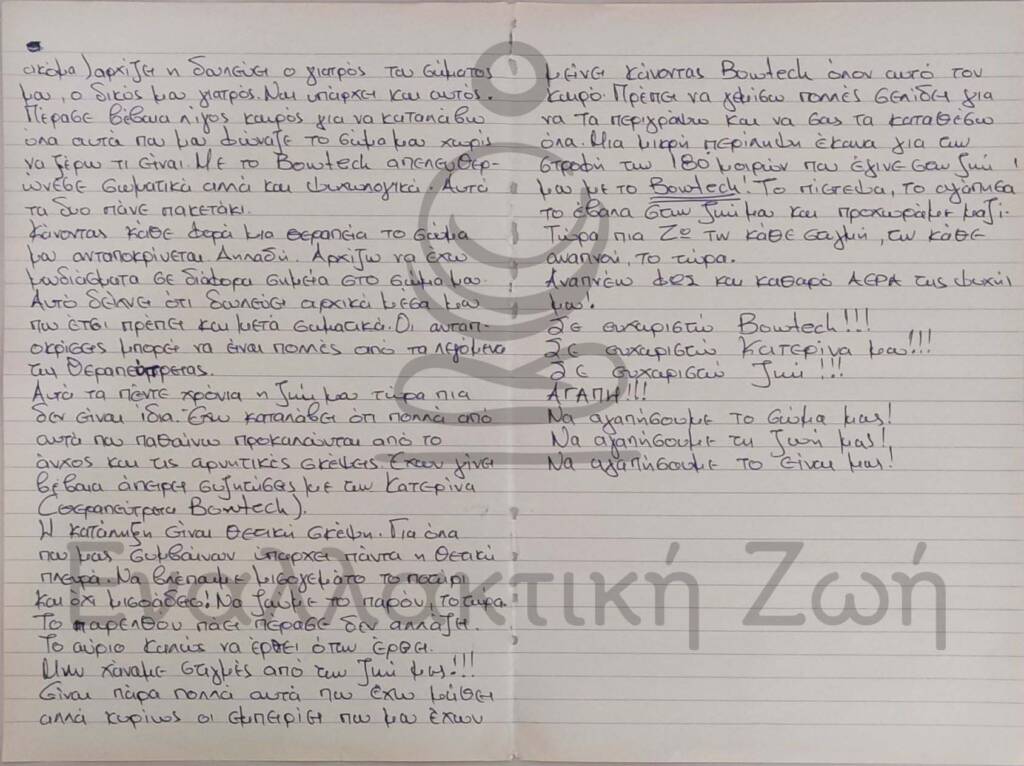 ακόμα) αρχίζει η δουλεύει ο γιατρός του σώματος
μου, ο δικός μου γιατρός. Ναι υπάρχει και αυτός.
Πέρασε βέβαια λίγος καιρός για να καταλάβω
όλα αυτά που μου φώναζε το σώμα μου χωρίς
να ξέρω τι είναι. Με το Bowtech απελευθερ-
ώνεσε σωματικά αλλά και ψυχολογικά. Αυτά
τα δυο πάνε πακετάκι.
Κάνοντας κάθε φορά μια θεραπεία το σώμα
μου ανταποκρίνεται. Δηλαδή. Αρχίζω να έχω
μουδιάσματα σε διάφορα σημεία στο σώμα μου.
Αυτό δείχνει ότι δουλεύει αρχικά μέσα μου
που έτσι πρέπει και μετά σωματικά. Οι ανταπ-
οκρίσεις μπορεί να είναι πολλές από τα λεγόμενα
της θεραπεύτρειας.
Αυτά τα πέντε χρόνια η ζωή μου τώρα πια
δεν είναι ίδια. Έχω καταλάβει ότι πολλά από
αυτά που παθαίνω προκαλούνται από το
άνχος και τις αρνητικές σκέψεις. Έχουν γίνει
βέβαια άπειρες συζητήσεις με την Κατερίνα
(θεραπεύτρεια Bowtech).
Η κατάληξη είναι θετική σκέψη. Για όλα
που μας συμβαίνουν υπάρχει πάντα η θετική
πλευρά. Να βλέπουμε μισογεμάτο το ποτήρι
και όχι μισοάδειο! Να ζούμε το παρόν, το τώρα.
Το παρελθόν πάει πέρασε δεν αλλάζει.
Το αύριο καλώς να έρθει όταν έρθει.
Μην χάνουμε στιγμές από την ζωή μας!!!
Είναι πάρα πολλά αυτά που έχω μάθει
αλλά κυρίως οι εμπειρίες που μου έχουν
μείνει κάνοντας Bowtech όλον αυτό τον
καιρό. Πρέπει να γεμίσω πολλές σελίδες για
να τα περιγράψω και να σας τα καταθέσω
όλα. Μια μικρή περίληψη έκανα για την
στροφή των 180 μοιρών που έγινε στην ζωή
μου με το Bowtech! Το πίστεψα, το αγάπησα
το έβαλα στην ζωή μου και προχωράμε μαζί.
Τώρα πια Ζω την κάθε στιγμή, την κάθε
αναπνοή, το τώρα.
Αναπνέω ΦΩΣ και καθαρό ΑΕΡΑ της ψυχής
μου.
Σε ευχαριστώ Bowtech!!!
Σε ευχαριστώ Κατερίνα μου!!!
Σε ευχαριστώ ζωή!!!
ΑΓΑΠΗ!!!
Να αγαπήσουμε το σώμα μας!
Να αγαπήσουμε τη ζωή μας!
Να αγαπήσουμε το είναι μας!
Εναλλακτική Ζωή